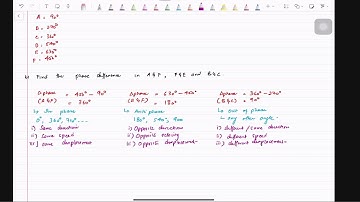 A = 90°
B = 270°
C = 360°
D = 540°
E = 630°
F = 450°
Find the phase difference in A & F, F & E and B & C
Δphase = 450° - 90°
(A & F) = 360°
Δphase = 630° - 450°
(E & F) = 180°
Δphase = 360° - 270°
(B & C) = 90°
In phase
0°, 360°, 720°...
i) Same direction
ii) Same speed
iii) Same displacement
Anti phase
180°, 540°, 900
i) Opposite direction
ii) Opposite
iii) Opposite displacement
Out of phase
any other angle
i) Different / same direction
ii) different speed
iii) different displacement